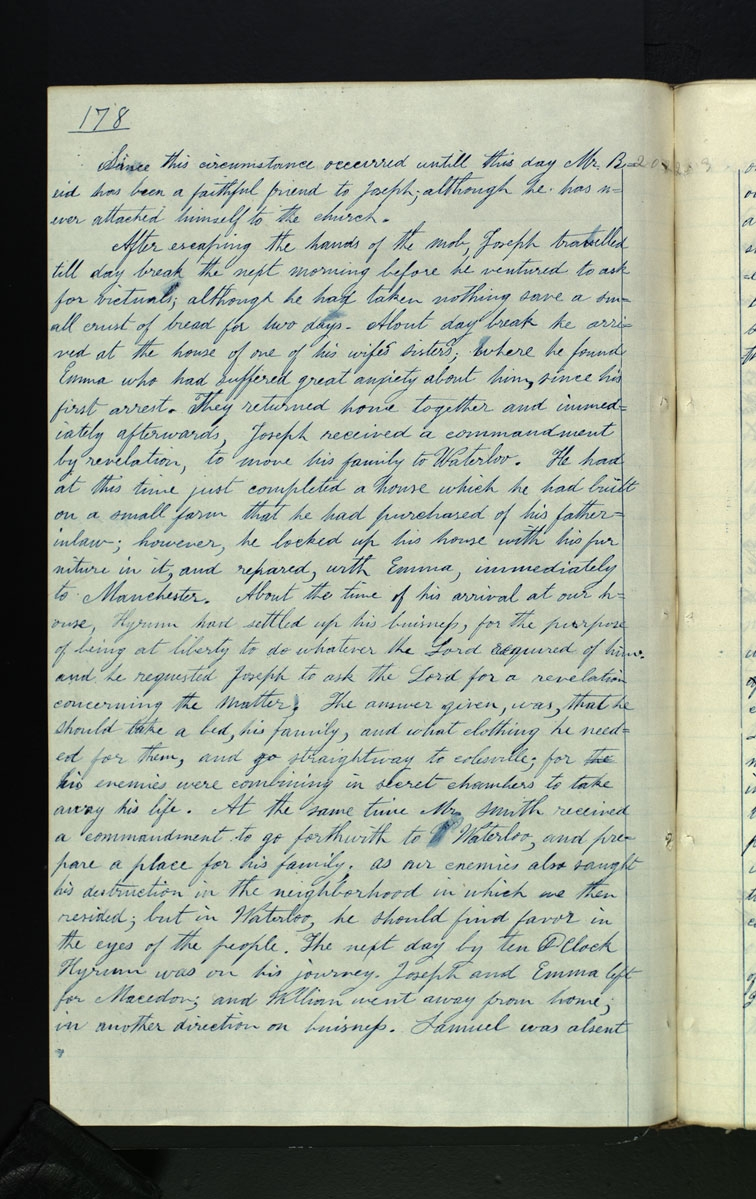 178
Since this circumstance occurred untill this day Mr. B=
eid has been a faithful friend to Joseph; although he has n=
ever attached himself to the church.
After escaping the hands of the mob, Joseph travelled
till day break the next morning before he ventured to ask
for victuals; although he had taken nothing save a sm=
all crust of bread for two days. About day break he arri=
ved at the house of one of his wifes sisters; where he found
Emma who had suffered great anxiety about him, since his
first arrest. They returned home together and immed=
iately afterwards, Joseph received a commandment
by revelation, to move his family to Waterloo. He had
at this time just completed a house which he had built
on a small farm that he had purchased of his father=
inlaw; however, he locked up his house with his fur
niture in it, and repared, with Emma, immediately
to Manchester. About the time of his arrival at our h=
ouse, Hyrum had settled up his buisness, for the purrpose
of being at liberty to do whatever the Lord required of him:
and he requested Joseph to ask the Lord for a revelation
concerning the matter. The answer given, was, that he
should take a bed, his family, and what clothing he need=
ed for them, and go straightway to colesville; for the
his enemies were combining in secret chambers to take
away his life. At the same time Mr. Smith received
a commandment to go forthwith to Waterloo, and pre=
pare a place for his family, as our enemies also sought
his destruction in the neighborhood in which we then
resided; but in Waterloo, he should find favor in
the eyes of the people. The next day by ten O'Clock
Hyrum was on his journey. Joseph and Emma left
for Macedon; and William went away from home,
in another direction on buisness. Samuel was absent